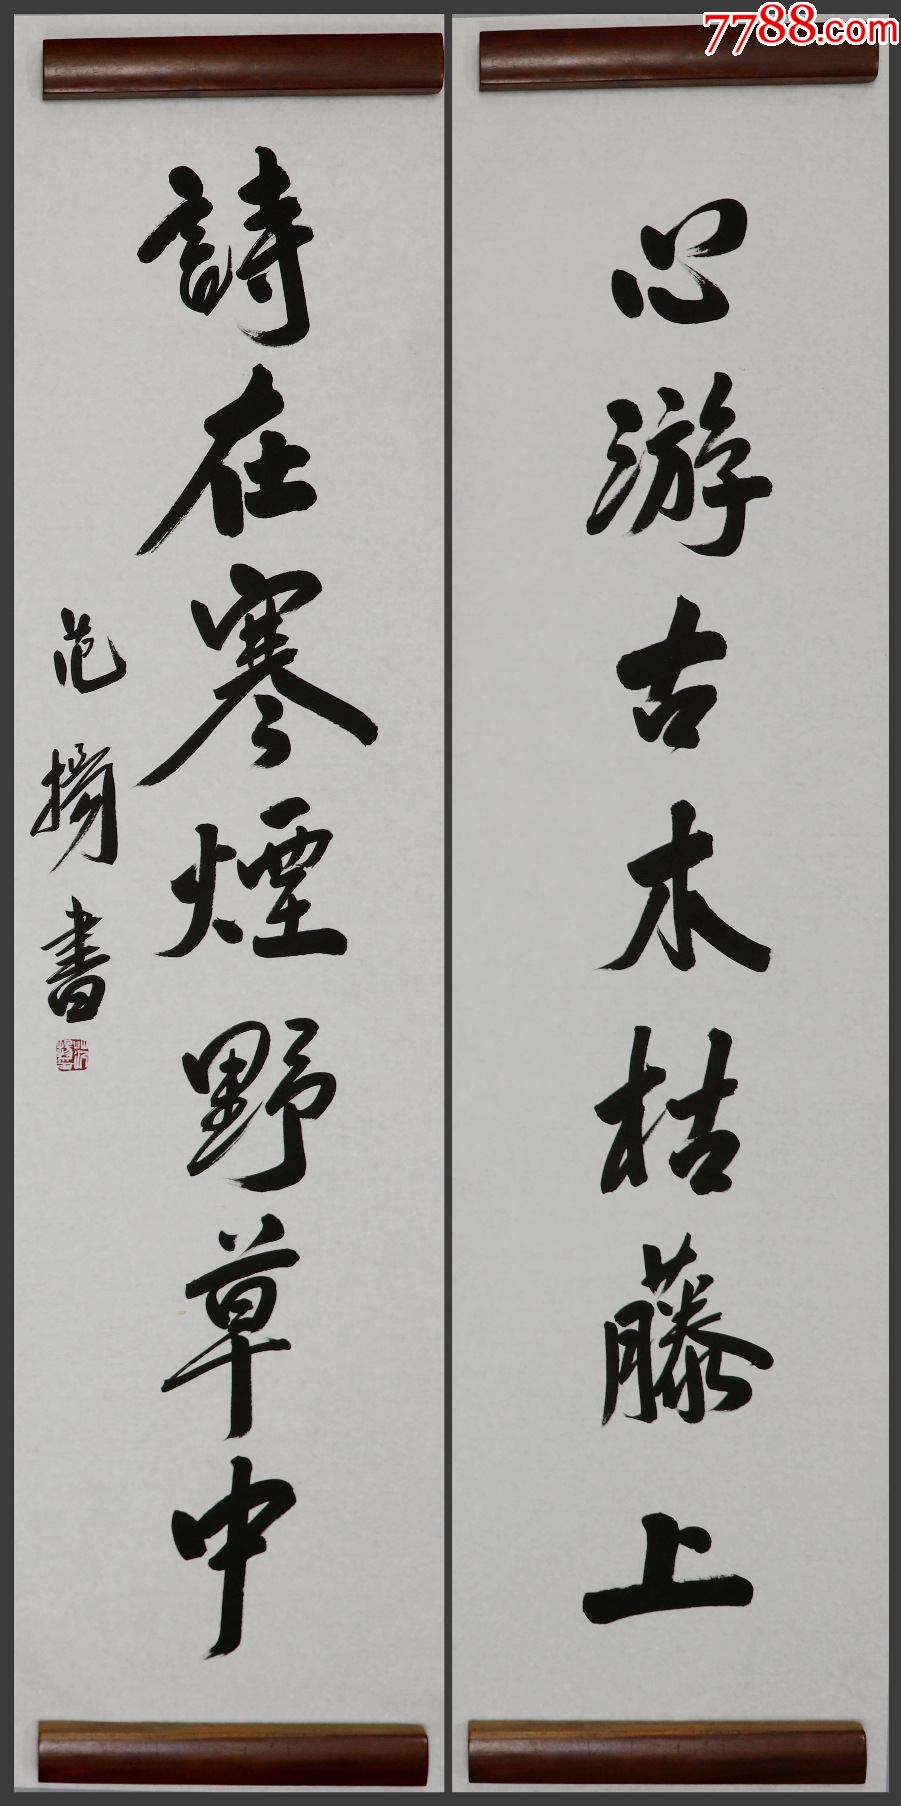 7788.com
心游古木枯藤上
詩在寒煙野草中
范揚書